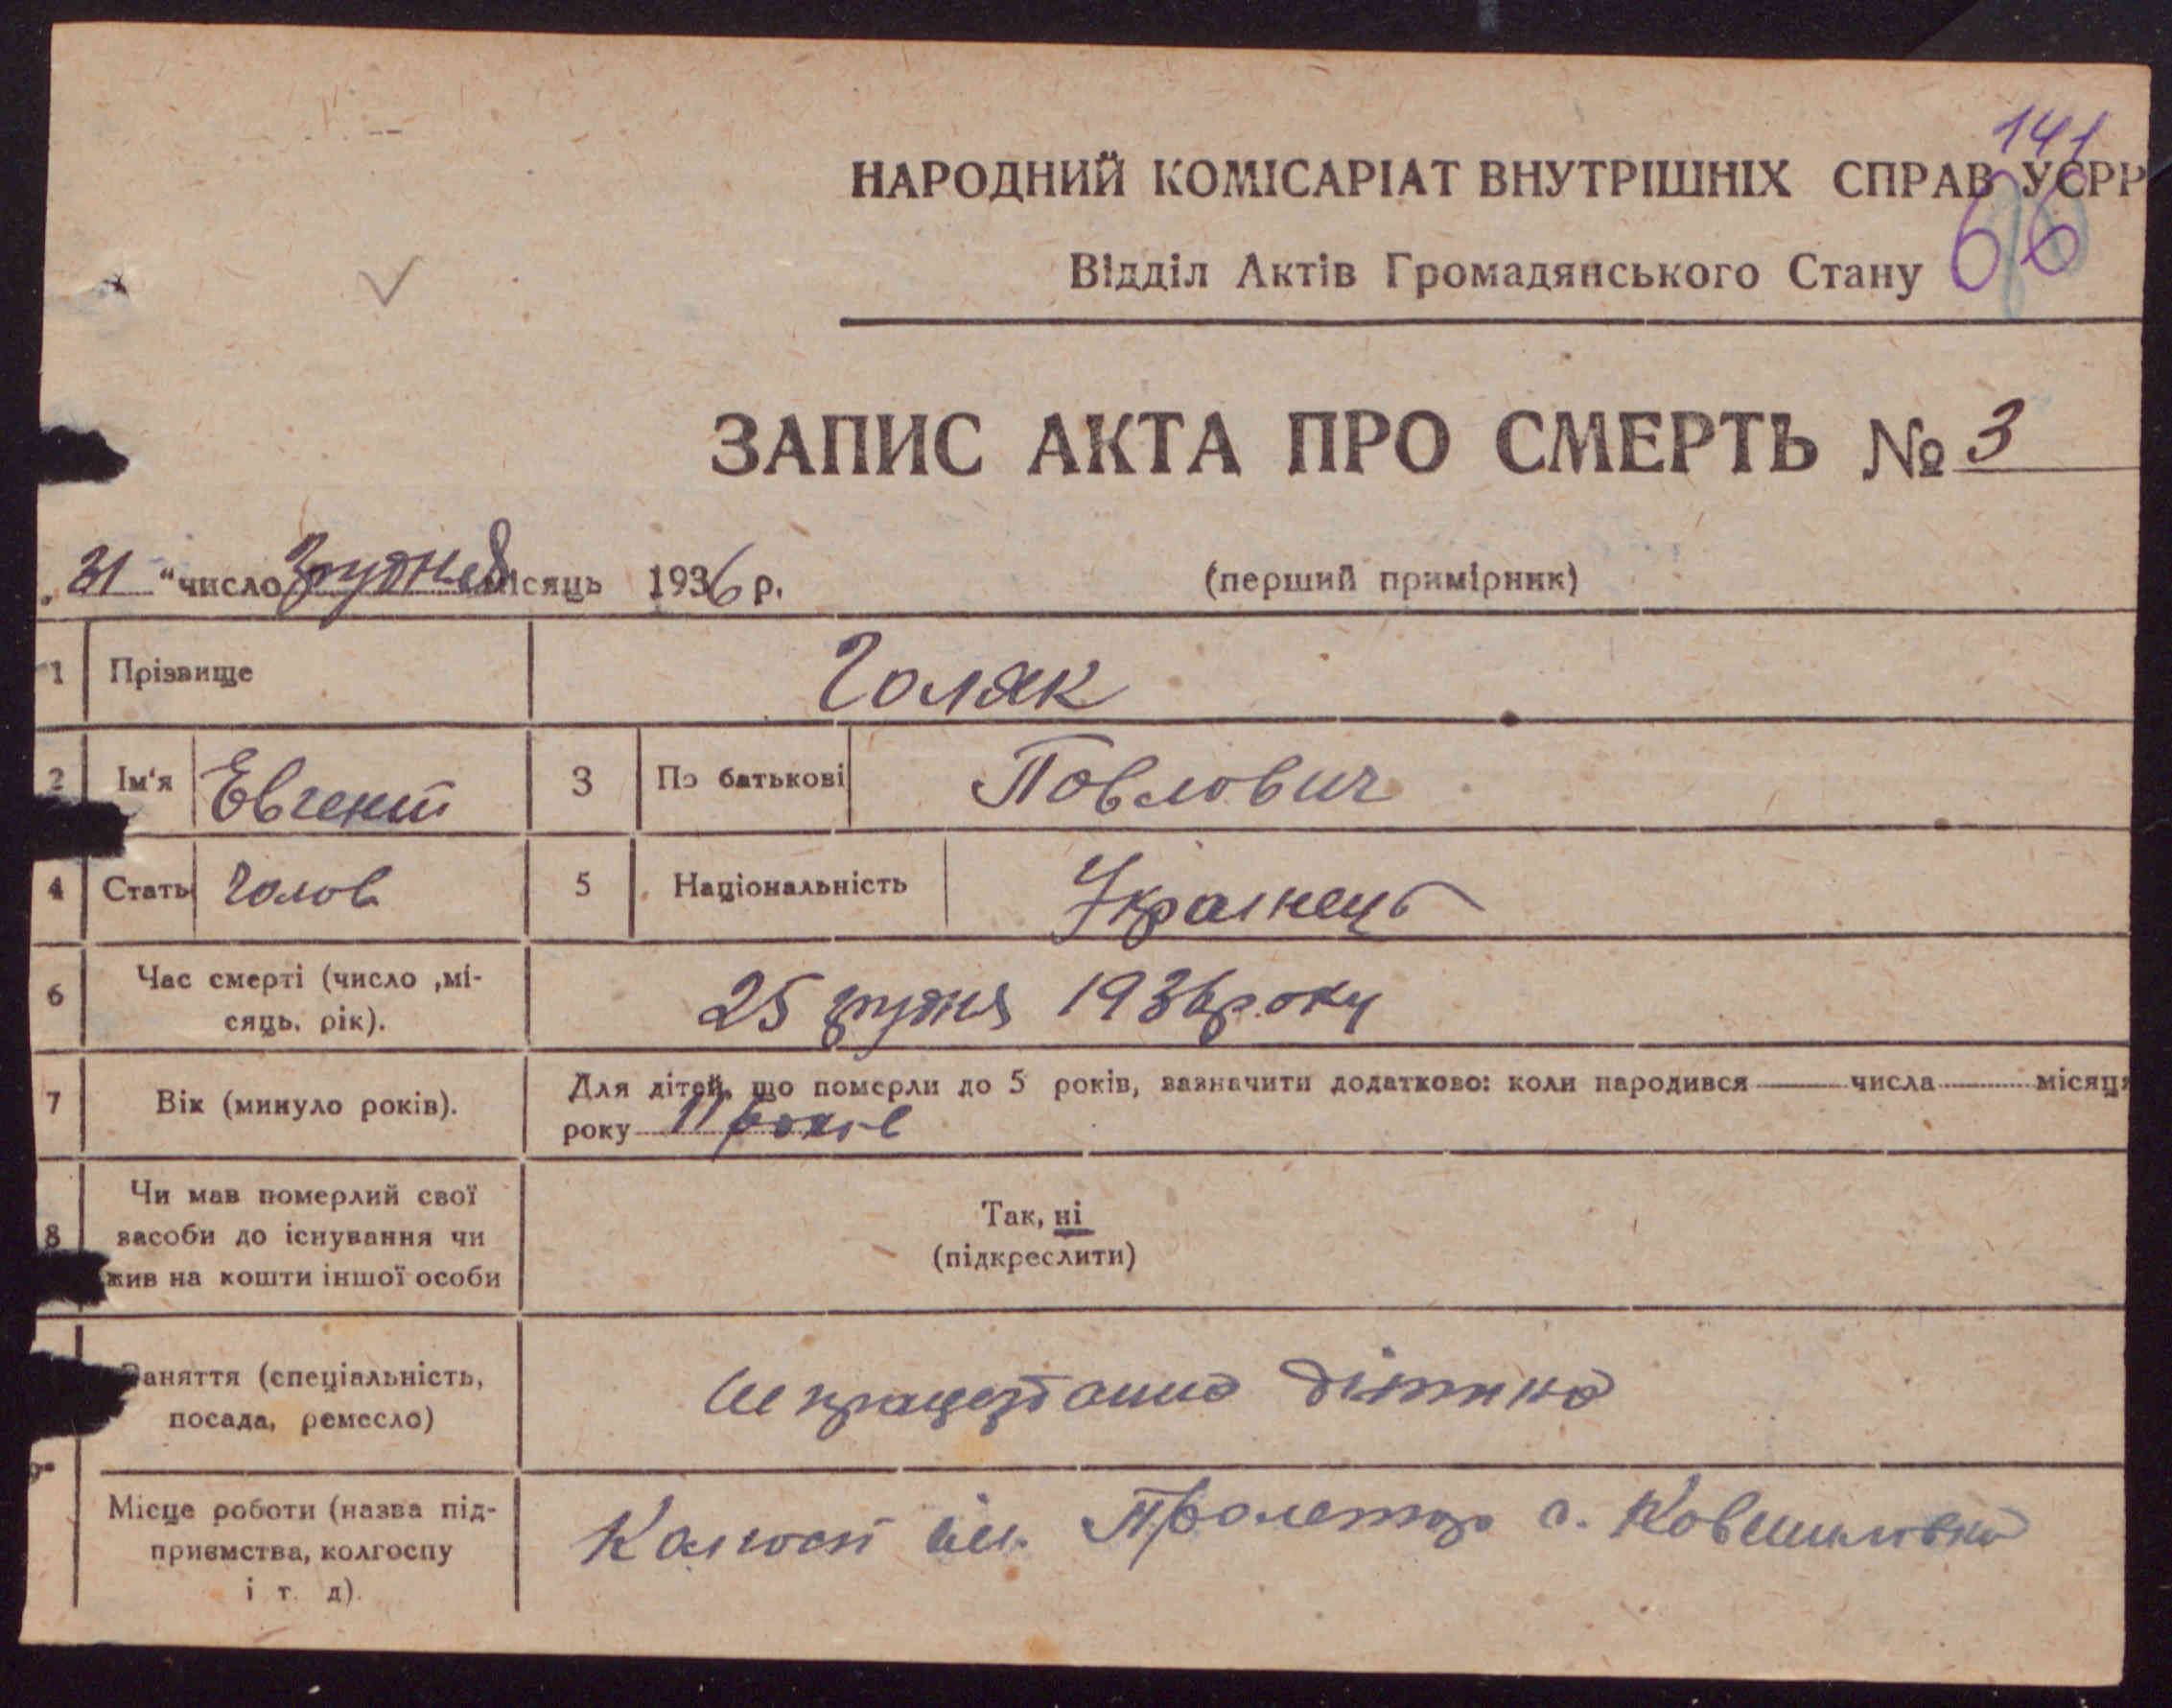 141
НАРОДНИЙ КОМІСАРІАТ ВНУТРІШНІХ СПРАВ УСРР
66
Відділ Актів Громадянського Стану
ЗАПИС АКТА ПРО СМЕРТЬ № 3
„31“ число грудня місяць 1936 р.
(перший примірник)
1 Прізвище Голяк
2 Ім'я Евгений 3 По батькові Повлович
4 Стать Чолов 5 Національність Украінець
6 Час смерті (число ,мі-
сяць, рік). 25 грудня 1936 року
7 Вік (минуло років). Для дітей, що померли до 5 років, зазначити додатково: коли народився числа місяця
року 11 років
8 Чи мав померлий свої
засоби до існування чи
жив на кошти іншої особи
Так, ні
(підкреслити)
Заняття (спеціальність,
посада, ремесло)
дітина
Місце роботи (назва під-
приємства, колгоспу
і т. д).
Колгосп ім. Пролетар с. Ковшилівка